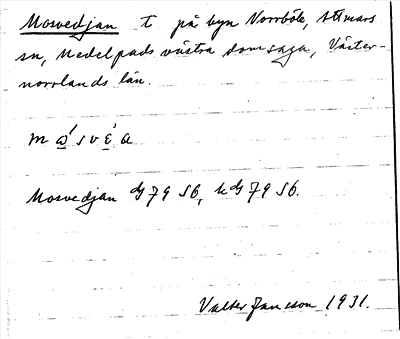 Mosvedjan t på byn Norrböle, Attmars
sn, Medelpads västra domsaga, Väster-
norrlands län.
m ώ̲ s v ɛ̲́ a
Mosvedjan dG 79 S6, kdG 79 S6.
Valter Jansson 1931.